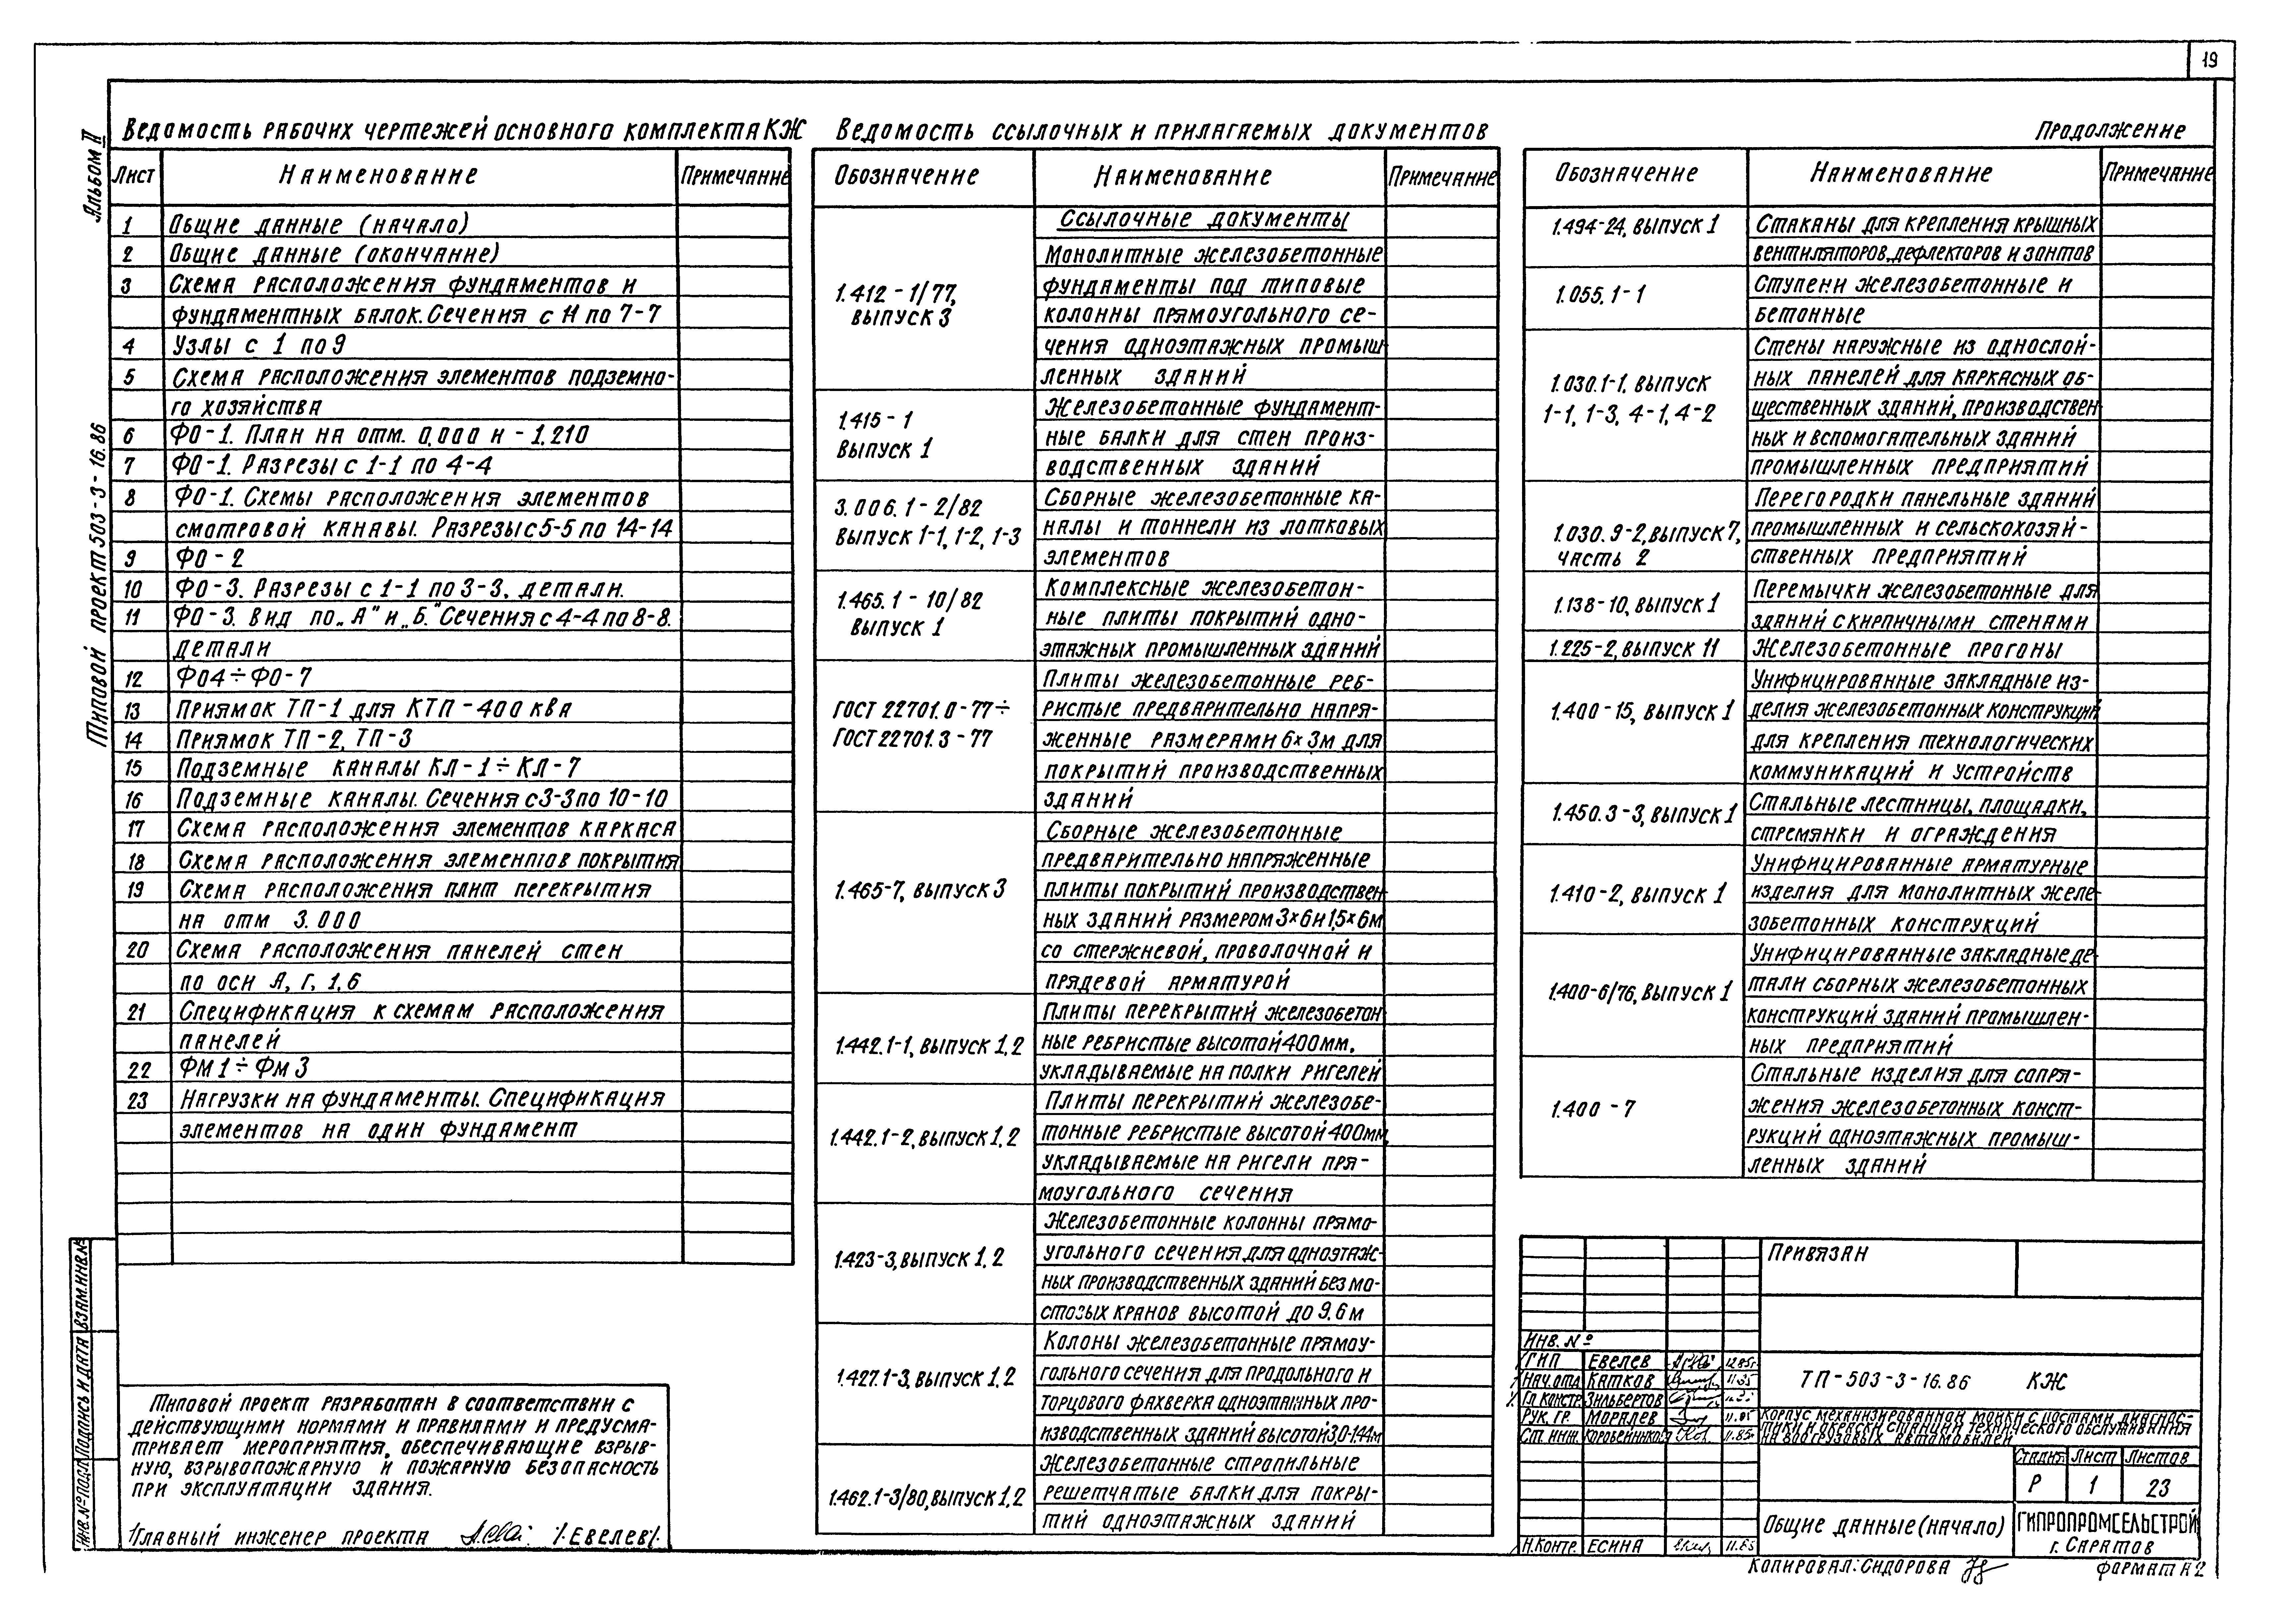 19
Альбом II
Типовой проект 503-3-16.86
Ведомость рабочих чертежей основного комплекта КЖ
Лист Наименование Примечание
1 Общие данные (начало)
2 Общие данные (окончание)
3 Схема расположения фундаментов и
фундаментных балок. Сечения с 1-1 по 7-7
4 Узлы с 1 по 9
5 Схема расположения элементов подземно-
го хозяйства
6 ФО-1. План на отм. 0.000 и -1.210
7 ФО-1. Разрезы с 1-1 по 4-4
8 ФО-1. Схемы расположения элементов
смотровой канавы. Разрезы с 5-5 по 14-14
9 ФО-2
10 ФО-3. Разрезы с 1-1 по 3-3, детали.
11 ФО-3. Вид по „А" и „Б." Сечения с 4-4 по 8-8.
детали
12 ФО4÷ФО-7
13 Приямок ТП-1 для КТП-400 ква
14 Приямок ТП-2, ТП-3
15 Подземные каналы КЛ-1÷КЛ-7
16 Подземные каналы. Сечения с 3-3 по 10-10
17 Схема расположения элементов каркаса
18 Схема расположения элементов покрытия
19 Схема расположения плит перекрытия
на отм 3.000
20 Схема расположения панелей стен
по оси А, Г, 1, 6
21 Спецификация к схемам расположения
панелей
22 ФМ1÷ФМ3
23 Нагрузки на фундаменты. Спецификация
элементов на один фундамент
Типовой проект разработан в соответствии с
действующими нормами и правилами и предусма-
тривает мероприятия, обеспечивающие взрыв-
ную, взрывопожарную и пожарную безопасность
при эксплуатации здания.
Главный инженер проекта /Евелев/.
Ведомость ссылочных и прилагаемых документов
Обозначение Наименование Примечание
Ссылочные документы
1.412-1/77, выпуск 3
Монолитные железобетонные
фундаменты под типовые
колонны прямоугольного се-
чения одноэтажных промыш-
ленных зданий
1.415-1 Выпуск 1
Железобетонные фундамент-
ные балки для стен произ-
водственных зданий
3.006.1-2/82 Выпуск 1-1, 1-2, 1-3
Сборные железобетонные ка-
налы и тоннели из лотковых
элементов
1.465.1-10/82 Выпуск 1
Комплексные железобетон-
ные плиты покрытий одно-
этажных промышленных зданий
ГОСТ 22701.0-77÷ ГОСТ 22701.3-77
Плиты железобетонные реб-
ристые предварительно напря-
женные размерами 6×3м для
покрытий производственных
зданий
1.465-7, выпуск 3
Сборные железобетонные
предварительно напряженные
плиты покрытий производствен-
ных зданий размером 3×6 и 1,5×6м
со стержневой, проволочной и
прядевой арматурой
1.442.1-1, выпуск 1,2
Плиты перекрытий железобетон-
ные ребристые высотой 400мм,
укладываемые на полки ригелей
1.442.1-2, выпуск 1,2
Плиты перекрытий железобе-
тонные ребристые высотой 400мм,
укладываемые на ригели пря-
моугольного сечения
1.423-3, выпуск 1,2
Железобетонные колонны прямо-
угольного сечения для одноэтаж-
ных производственных зданий без мо-
стовых кранов высотой до 9,6м
1.427.1-3, выпуск 1,2
Колоны железобетонные прямоу-
гольного сечения для продольного и
торцового фахверка одноэтажных про-
изводственных зданий высотой 3,0-14,4м
1.462.1-3/80, выпуск 1,2
Железобетонные стропильные
решетчатые балки для покры-
тий одноэтажных зданий
Продолжение
Обозначение Наименование Примечание
1.494-24, выпуск 1
Стаканы для крепления крышных
вентиляторов, дефлекторов и зонтов
1.055.1-1
Ступени железобетонные и
бетонные
1.030.1-1, выпуск 1-1, 1-3, 4-1, 4-2
Стены наружные из однослой-
ных панелей для каркасных об-
щественных зданий, производствен
ных и вспомогательных зданий
промышленных предприятий
1.030.9-2, выпуск 7, часть 2
Перегородки панельные зданий
промышленных и сельскохозяй-
ственных предприятий
1.138-10, выпуск 1
Перемычки железобетонные для
зданий с кирпичными стенами
1.225-2, выпуск 11 Железобетонные прогоны
1.400-15, выпуск 1
Унифицированные закладные из-
делия железобетонных конструкций
для крепления технологических
коммуникаций и устройств
1.450.3-3, выпуск 1
Стальные лестницы, площадки,
стремянки и ограждения
1.410-2, выпуск 1
Унифицированные арматурные
изделия для монолитных желе-
зобетонных конструкций
1.400-6/76, выпуск 1
Унифицированные закладные де-
тали сборных железобетонных
конструкций зданий промышлен-
ных предприятий
1.400-7
Стальные изделия для сопря-
жения железобетонных конст-
рукций одноэтажных промыш-
ленных зданий
Привязан
Инв. №
ГИП Евелев 12.85г
Нач.отд Катков 11.85
Гл.констр. Зильбертов
Рук. гр. Моралев 11.85
Ст. инж. Коровенников 11.85г
Н.контр. Есина 11.85
ТП-503-3-16.86 КЖ
Корпус механизированной мойки с постами диагнос-
тики и окраски станции технического обслуживания
на 800 грузовых автомобилей
Стадия Лист Листов
Р 1 23
Общие данные (начало)
ГИПРОПРОМСЕЛЬСТРОЙ
г. Саратов
Копировал: Сидорова
Формат А2
Инв.№подл Подпись и дата Взам.инв.№